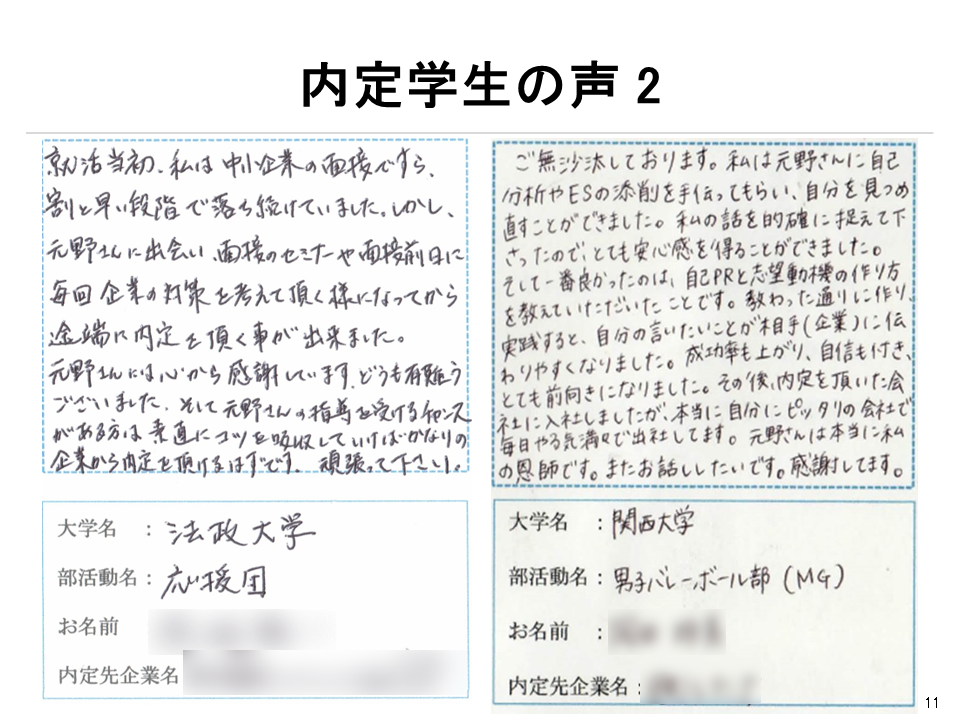 内定学生の声 2
就活当初、私は中小企業の面接ですら、
割と早い段階で落ち続けていました。しかし、
元野さんに出会い、面接のセミナーや面接前日に
毎回企業の対策を考えて頂く様になってから
途端に内定を頂く事が出来ました。
元野さんには心から感謝しています。どうも有難う
ございました。そして元野さんの指導を受けるチャンス
がある方は素直にコツを吸収していけばかなりの
企業から内定を頂けるはずです。頑張って下さい。
大学名 : 法政大学
部活動名 : 応援団
お名前
内定先企業名
ご無沙汰しております。私は元野さんに自己
分析やESの添削を手伝ってもらい、自分を見つめ
直すことができました。私の話を的確に捉えて下
さったので、とても安心感を得ることができました。
そして一番良かったのは、自己PRと志望動機の作り方
を教えていただいたことです。教わった通りに作り、
実践すると、自分の言いたいことが相手(企業)に伝
わりやすくなりました。成功率も上がり、自信も付き、
とても前向きになりました。その後、内定を頂いた会
社に入社しましたが、本当に自分にピッタリの会社で
毎日やる気満々で出社してます。元野さんは本当に私
の恩師です。またお話ししたいです。感謝してます。
大学名 : 関西大学
部活動名 : 男子バレーボール部 (MG)
お名前 :
内定先企業名 :
11